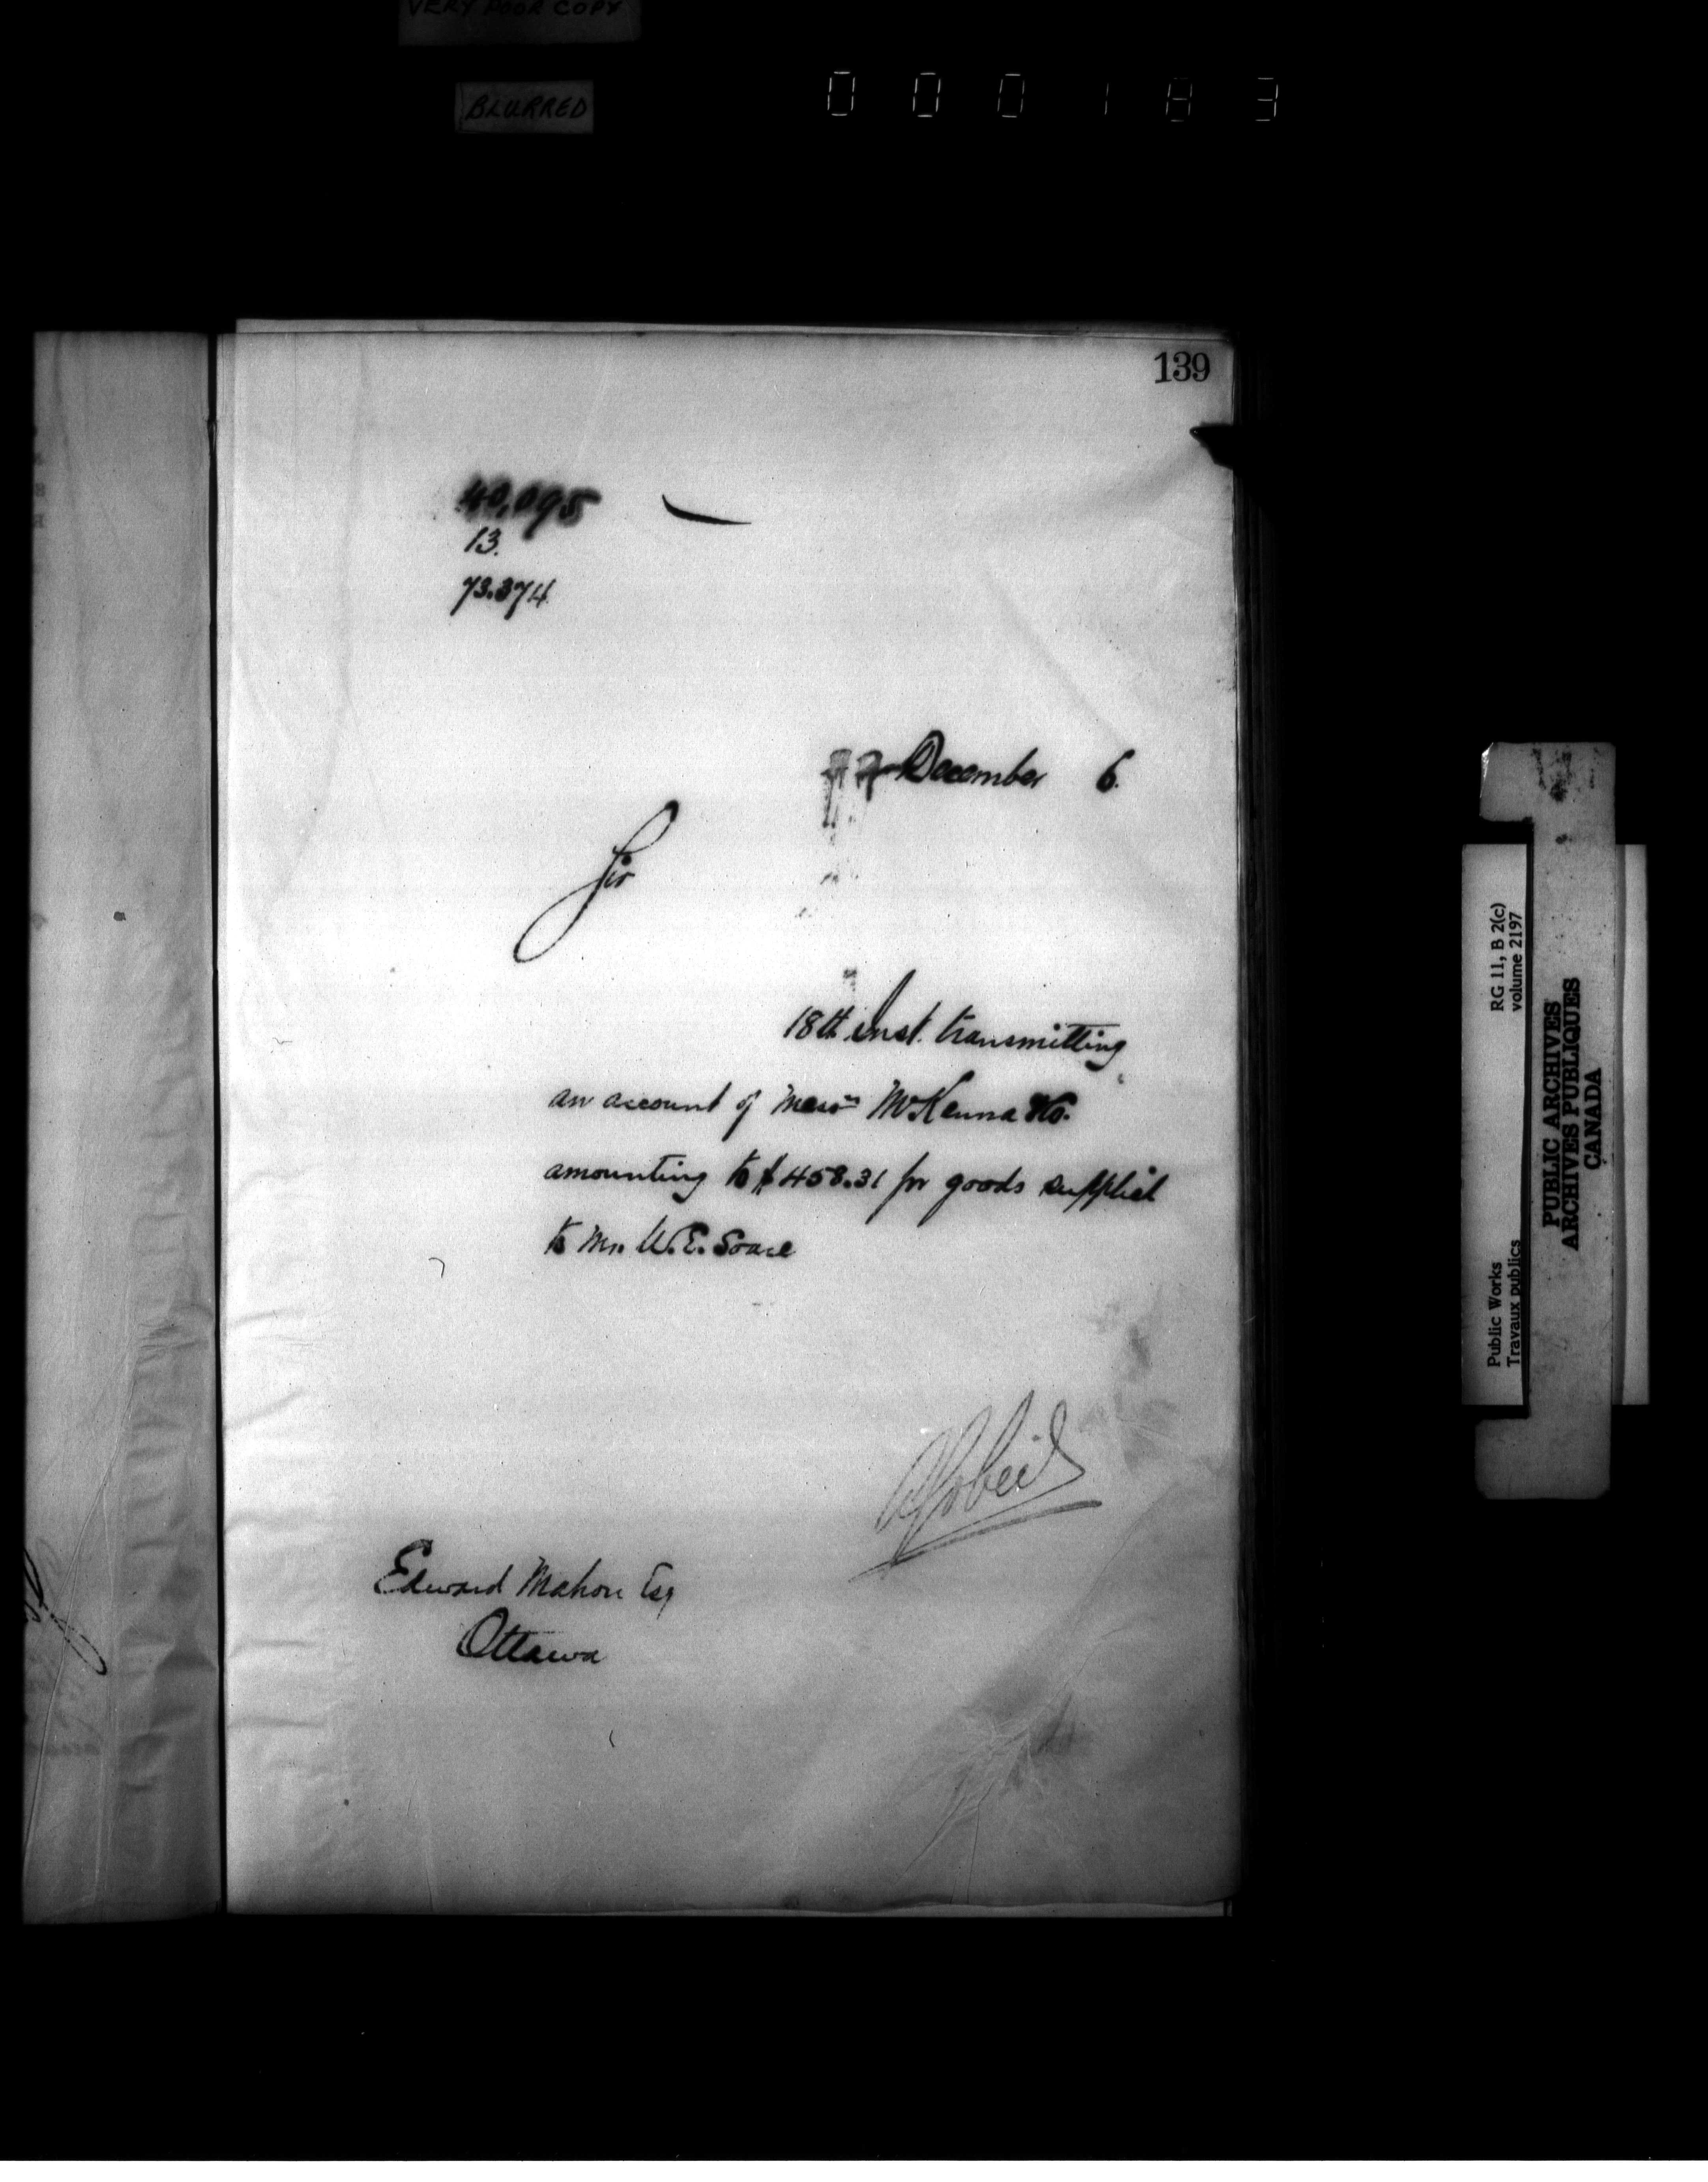 VERY POOR COPY
BLURRED
000183
139
40,095
13.
73.374
December 6.
Sir
18th inst. transmitting
an account of Messrs McKenna &Co.
amounting to $458.31 for goods supplied
to Mr. W. E.
Edward Mahon Esq
Ottawa
RG 11, B 2(c)
volume 2197
Public Works
Travaux publics
PUBLIC ARCHIVES
ARCHIVES PUBLIQUES
CANADA